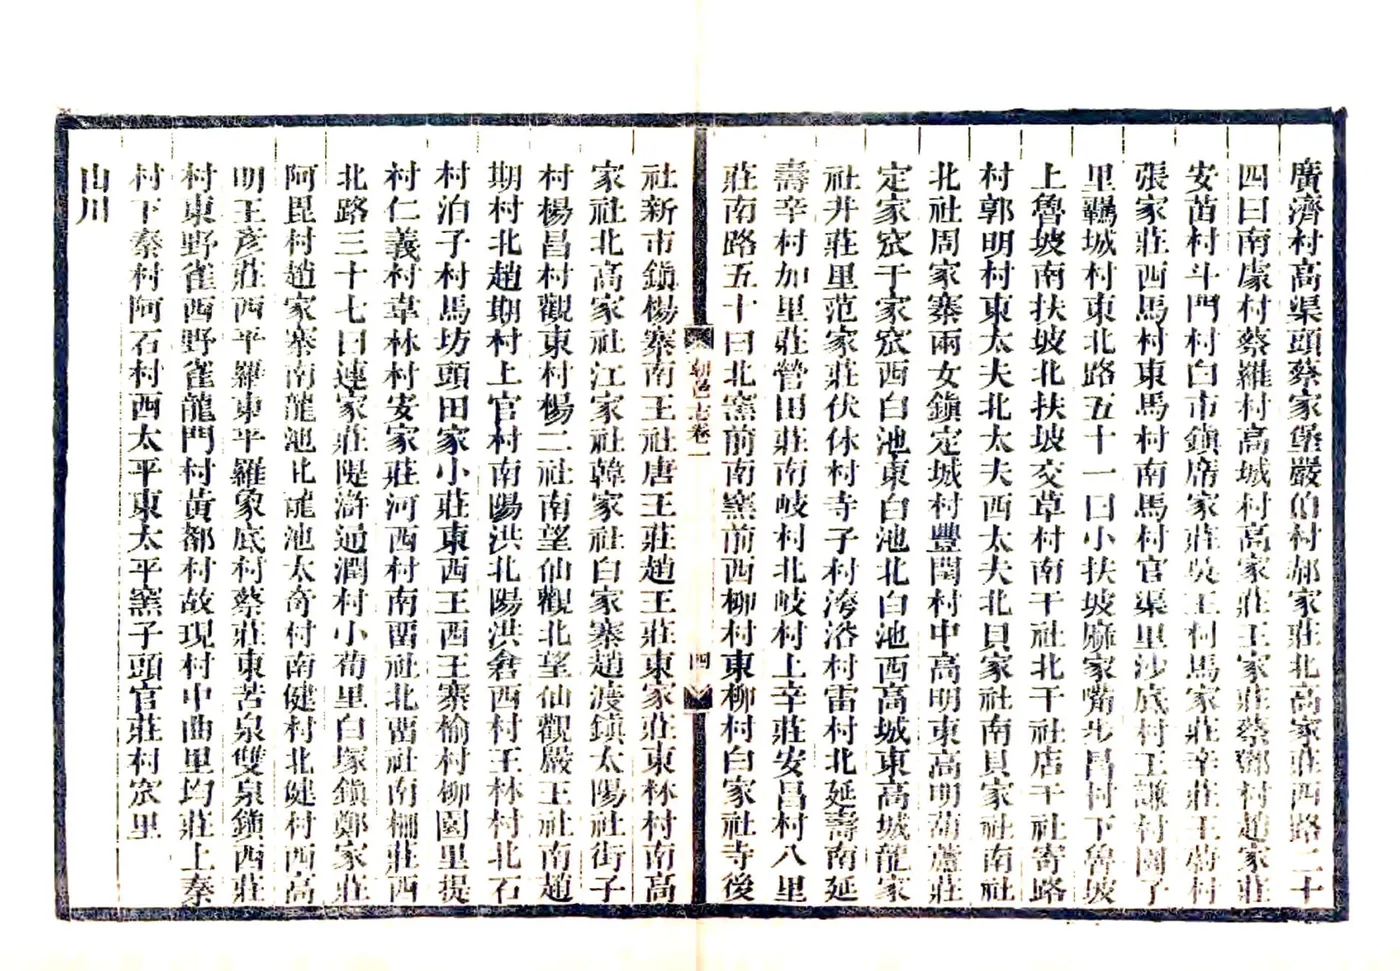 廣濟村高渠頭蔡家堡嚴伯村郝家莊北高家莊西路二十
四曰南處村蔡羅村高城村高家莊王家莊蔡鄧村趙家莊
安苗村斗門村白市鎮席家莊吳王村馬家莊辛莊王蔚村
張家莊西馬村東馬村南馬村官渠里沙底村王謙村園子
里羈城村東北路五十一曰小扶坡麻家嘴步昌村下魯坡
上魯坡南扶坡北扶坡交草村南干社北干社店干社寄路
村郭明村東太夫北太夫西太夫北貝家社南貝家社南社
北社周家寨兩女鎮定城村豐閏村中高明東高明葫蘆莊
定家宼于家宼西白池東白池北白池西高城東高城龍家
社井莊里范家莊伏休村寺子村洿浴村雷村北延壽南延
壽辛村加里莊營田莊南岐村北岐村上辛莊安昌村八里
莊南路五十曰北窯前南窯前西柳村東柳村白家社寺後
朝邑志卷一
四
社新市鎮楊寨南王社唐王莊趙王莊東家莊東林村南高
家社北高家社江家社韓家社白家寨趙渡鎮太陽社街子
村楊昌村觀東村楊二社南望仙觀北望仙觀嚴王社南趙
期村北趙期村上官村南陽洪北陽洪倉西村王林村北石
村泊子村馬坊頭田家小莊東西王西王寨榆村柳園里提
村仁義村草林村安家莊河西村南留社北留社南柵莊西
北路三十七曰連家莊隄滸通潤村小荀里白塚鎮鄭家莊
阿毘村趙家寨南龍池北龍池太奇村南健村北健村西高
明王彥莊西平羅東平羅象底村蔡莊東苦泉雙泉鎮西莊
村東野雀西野雀龍門村黃都村故現村中曲里均莊上秦
村下秦村阿石村西太平東太平窯子頭官莊村宼里
山川